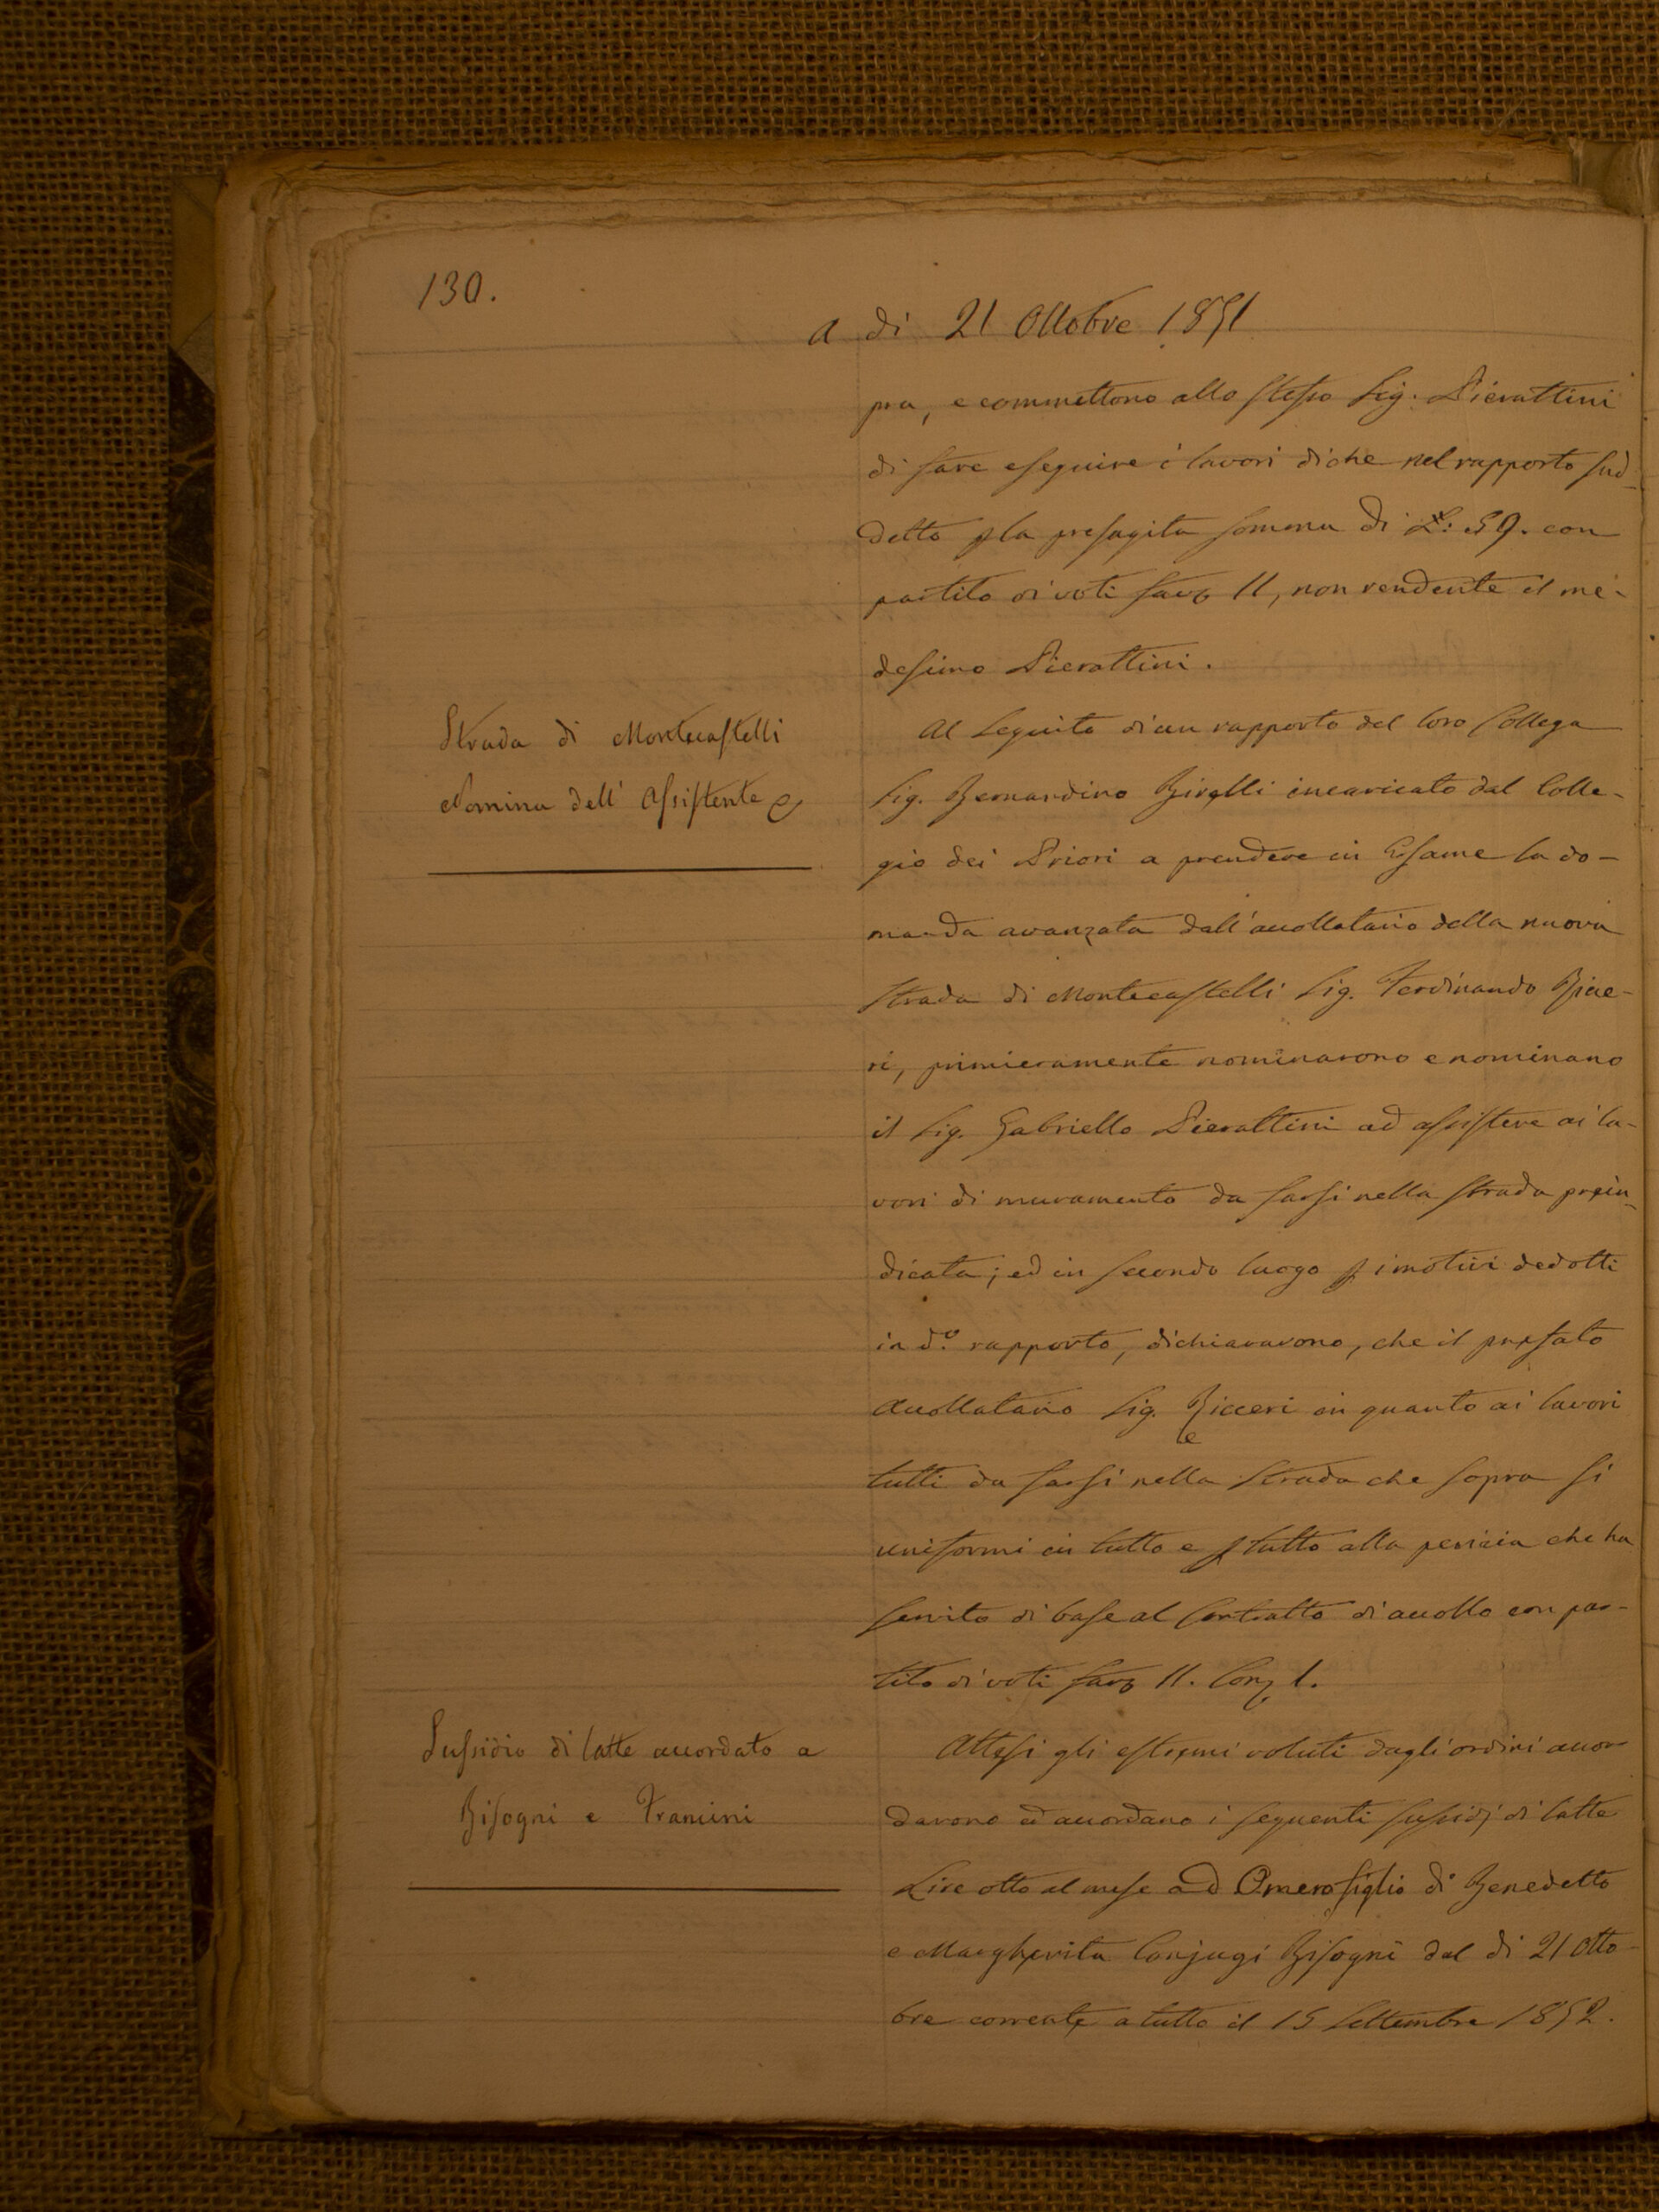 130.
a dì 21 Ottobre 1851
pra, e commettono allo stesso Sig. Pierattini
di fare eseguire i lavori di che nel rapporto sud-
detto p la presagita somma di L: 59. con
partito di voti fav 11, non rendente il me-
desimo Pierattini.
Strada di Montecastelli
Nomina dell' Assistente
Al seguito di un rapporto del loro Collega
Sig. Bernardino Birelli incaricato dal Colle-
gio dei Priori a prendere in Esame la do-
manda avanzata dall' accollatario della nuova
strada di Montecastelli Sig. Ferdinando Bicce-
ri, primieramente nominarono e nominano
il Sig. Gabriello Pierattini ad assistere ai la-
vori di muramento da farsi nella strada prein-
dicata; ed in secondo luogo p i motivi dedotti
in d.o rapporto, dichiararono, che il prefato
Accollatario Sig. Bicceri in quanto ai lavori
tutti da farsi nella strada che sopra si
uniformi in tutto e p tutto alla perizia che ha
servito di base al Contratto di accollo con par-
tito di voti fav 11. Con 1.
Sussidio di latte accordato a
Bisogni e Francini
Attesi gli estremi voluti dagli ordini accor
darono ed accordano i seguenti sussidj di latte
Lire otto al mese ad Omero figlio di Benedetto
e Margherita Conjugi Bisogni dal dì 21 Otto-
bre corrente a tutto il 15 Settembre 1852.